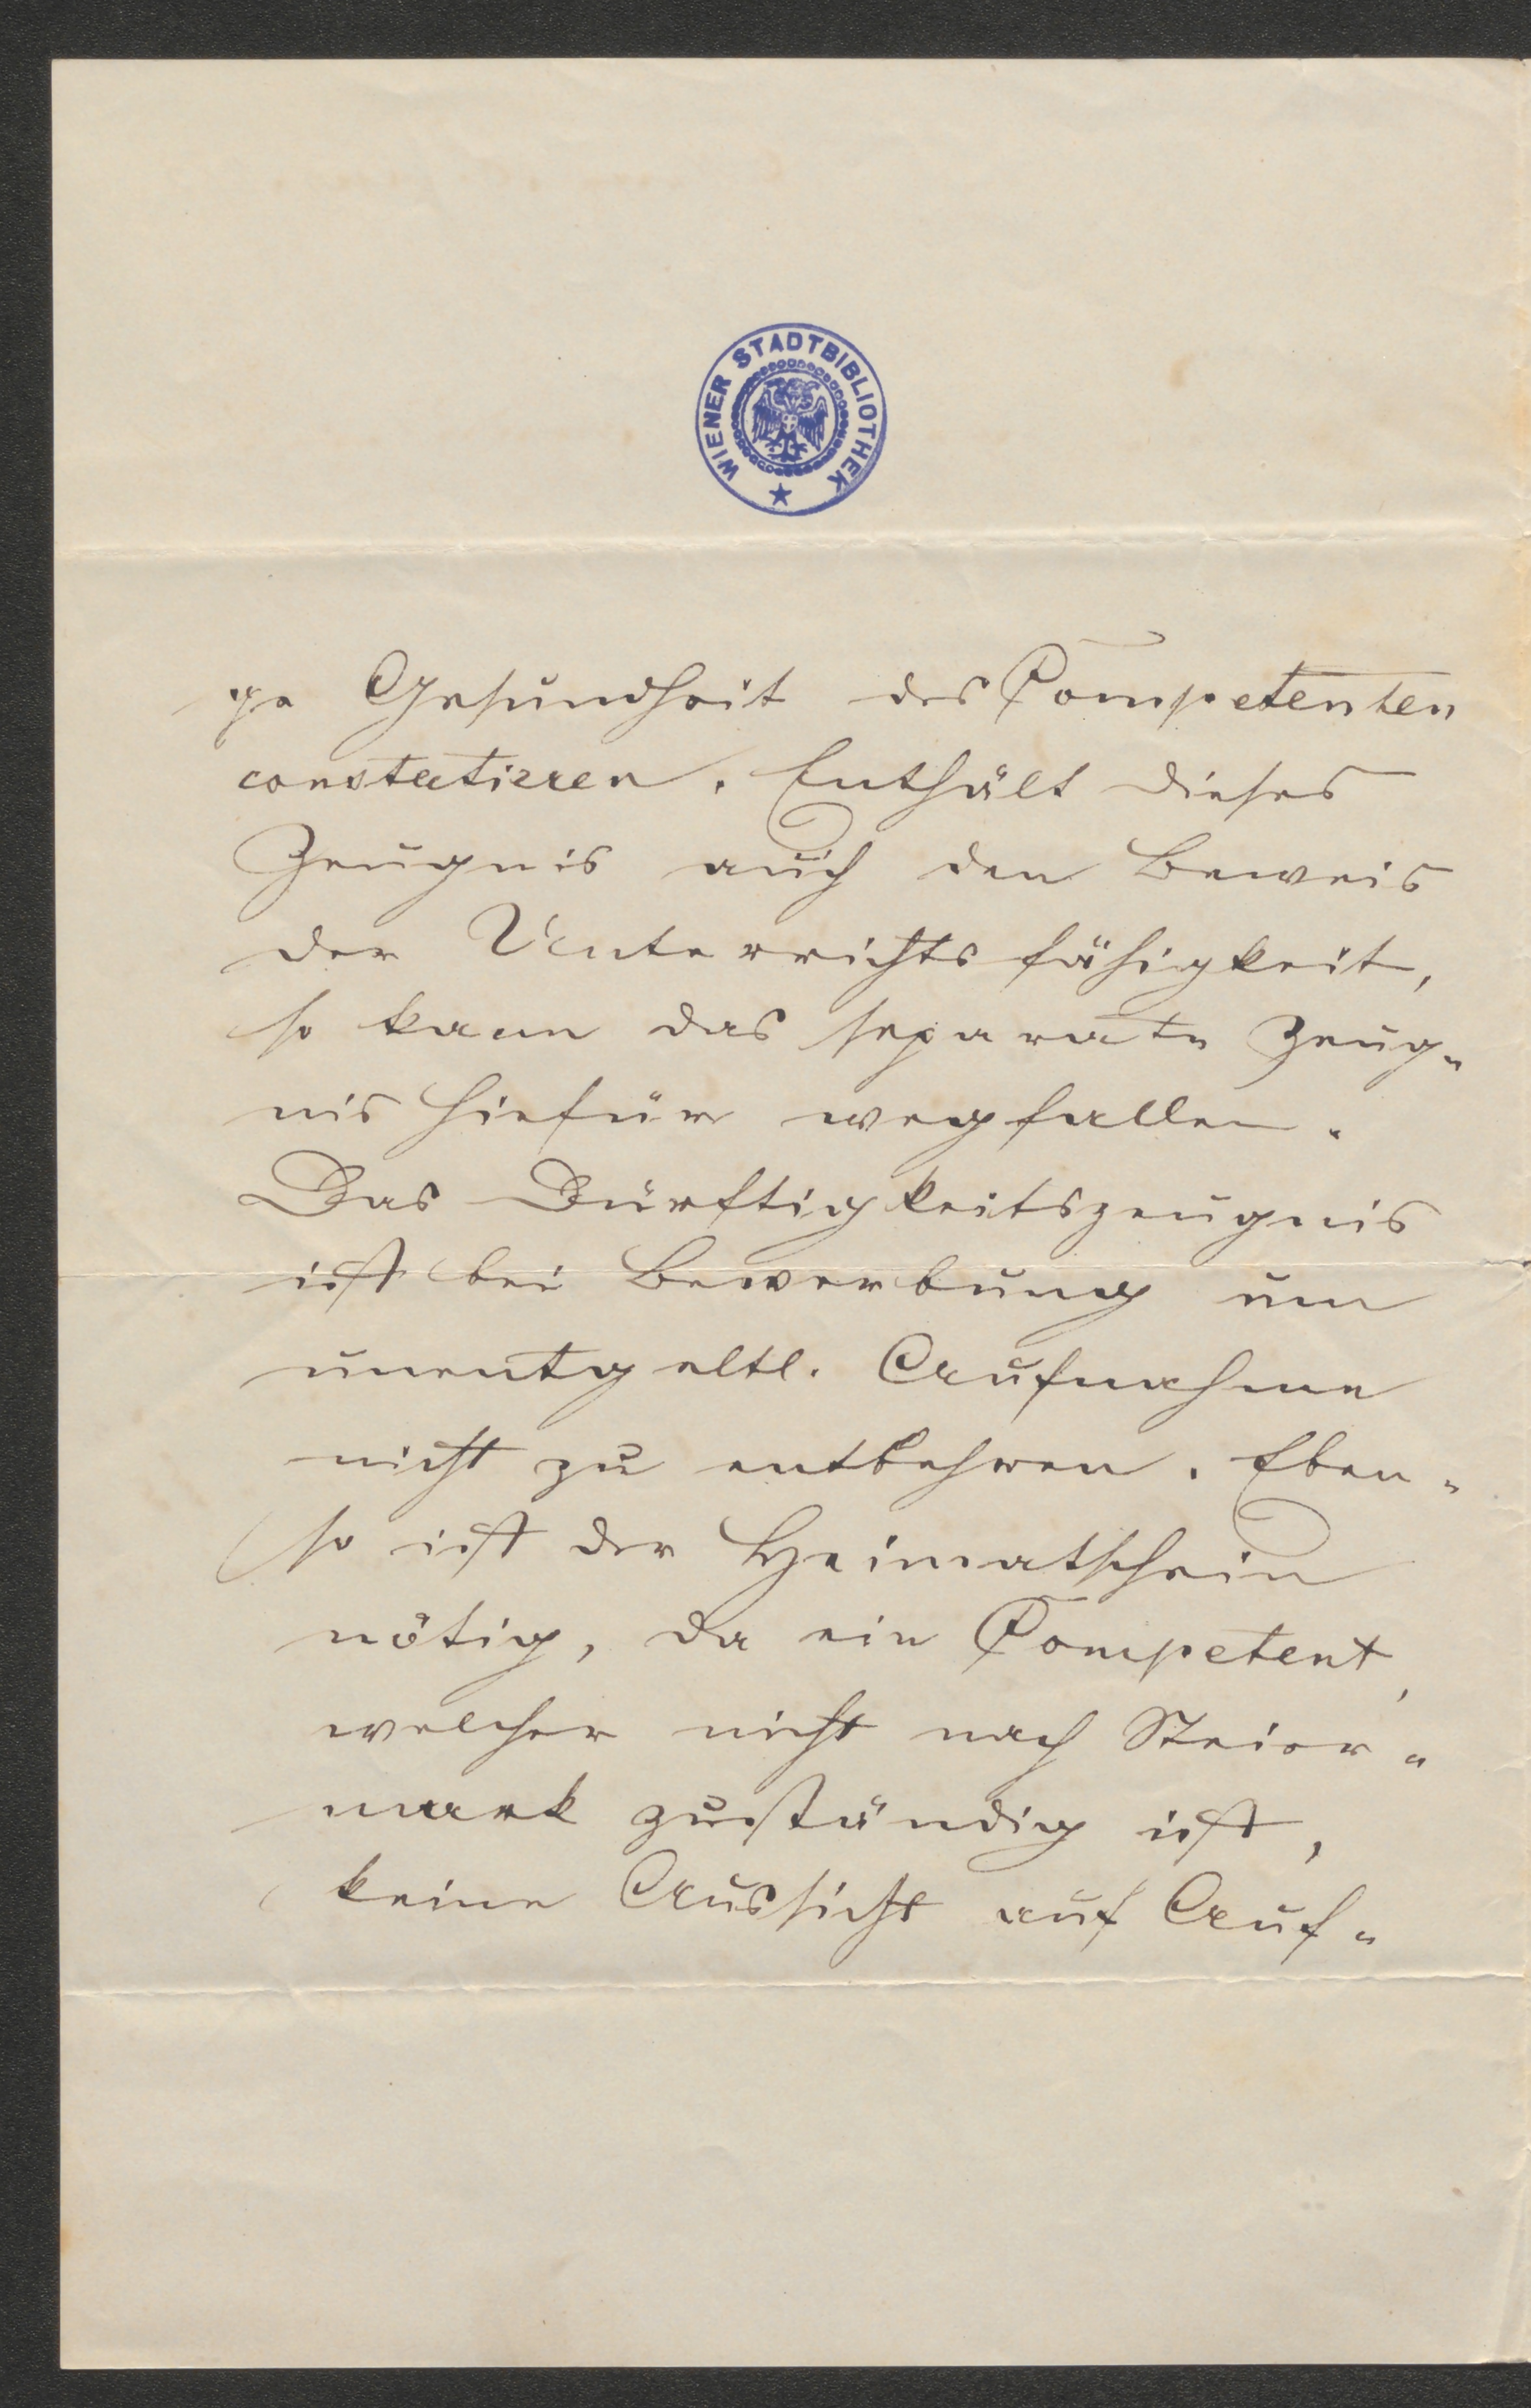 WIENER STADTBIBLIOTHEK
ge Gesundheit des Competenten
constatieren. Enthält dieses
Zeugnis auch den Beweis
der Unterrichtsfähigkeit,
so kann das separate Zeug-
nis hiefür wegfallen.
Das Dürftigkeitszeugnis
ist bei Bewerbung um
unentgeltl. Aufnahme
nicht zu entbehren. Eben-
so ist der Heimatschein
nötig, da ein Competent,
welcher nicht nach Steier-
mark zuständig ist,
keine Aussicht auf Auf-